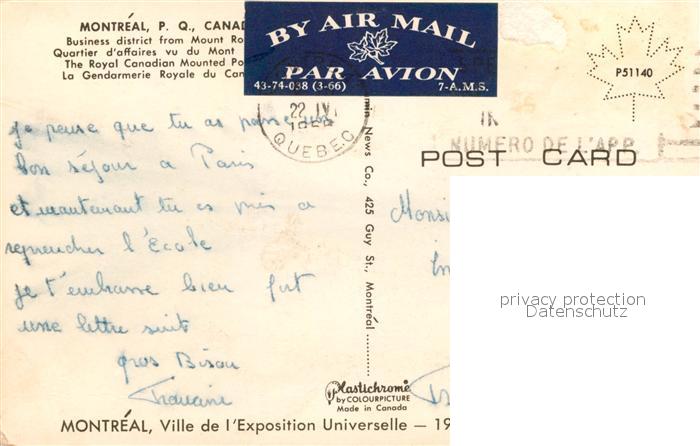 MONTRÉAL, P. Q., CANAD
Business district from Mount Ro
Quartier d'affaires vu du Mont
The Royal Canadian Mounted Po
La Gendarmerie Royale du Can
BY AIR MAIL
PAR AVION
43-74-038 (3-66) 7-A.M.S.
22 IV
QUEBEC
P51140
NUMERO DE L'APP
POST CARD
je pense que tu as passé un
bon séjour a Paris
et maintenant tu es près a
reprendre l'École
je t'embrasse bien fort
une lettre suit
gros Bisou
Monsi
min News Co., 425 Guy St., Montréal
privacy protection
Datenschutz
Plastichrome
by COLOURPICTURE
Made in Canada
MONTRÉAL, Ville de l'Exposition Universelle — 19